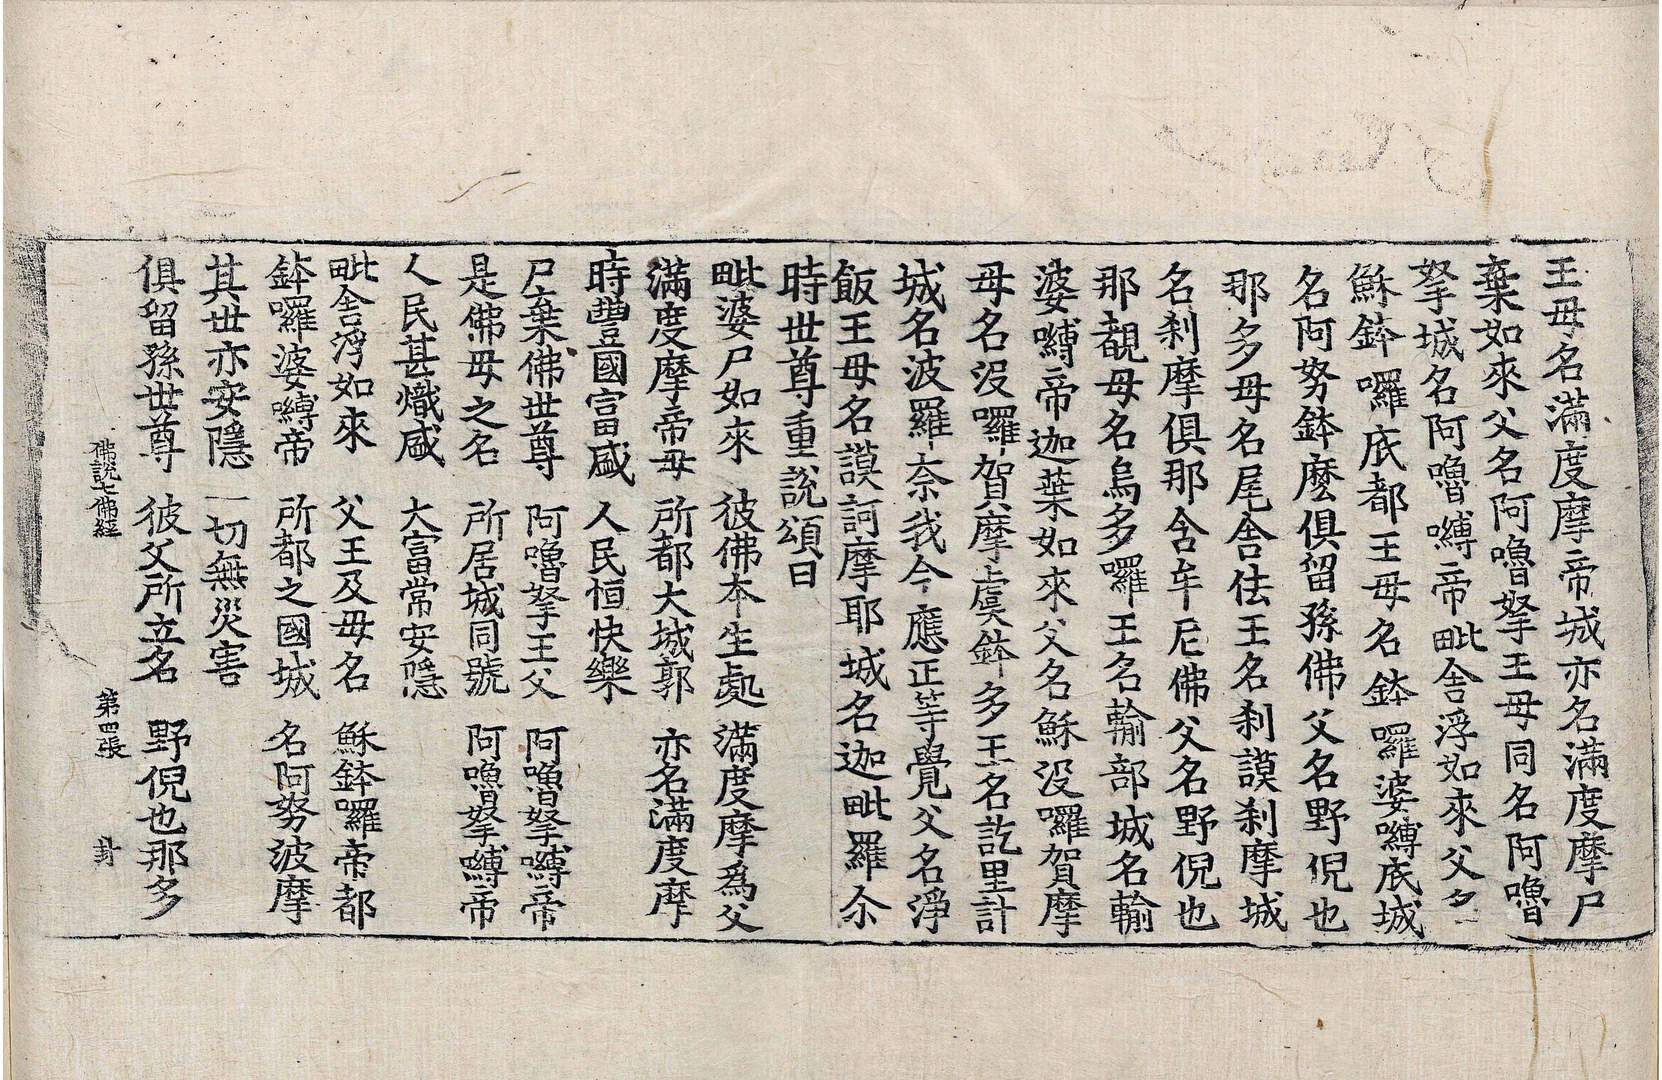 王母名滿度摩帝城亦名滿度摩尸
棄如來父名阿嚕拏王母同名阿嚕
拏城名阿嚕嚩帝毗舍浮如來父名
穌鉢囉底都王母名鉢囉婆嚩底城
名阿努鉢麽俱留孫佛父名野倪也
那多母名尾舍佉王名刹謨刹摩城
名刹摩俱那含牟尼佛父名野倪也
那覩母名烏多囉王名輸部城名輸
婆嚩帝迦葉如來父名穌沒囉賀摩
母名沒囉賀摩虞鉢多王名訖里計
城名波羅奈我今應正等覺父名淨
飯王母名謨訶摩耶城名迦毗羅尒
時世尊重說頌曰
毗婆尸如來 彼佛本生處 滿度摩爲父
滿度摩帝母 所都大城郭 亦名滿度摩
時豐國富盛 人民恒快樂
尸棄佛世尊 阿嚕拏王父 阿嚕拏嚩帝
是佛母之名 所居城同號 阿嚕拏嚩帝
人民甚熾盛 大富常安隱
毗舍浮如來 父王及母名 穌鉢囉帝都
鉢囉婆嚩帝 所都之國城 名阿努波摩
其世亦安隱 一切無災害
俱留孫世尊 彼父所立名 野倪也那多
佛說七佛經 第四張 封